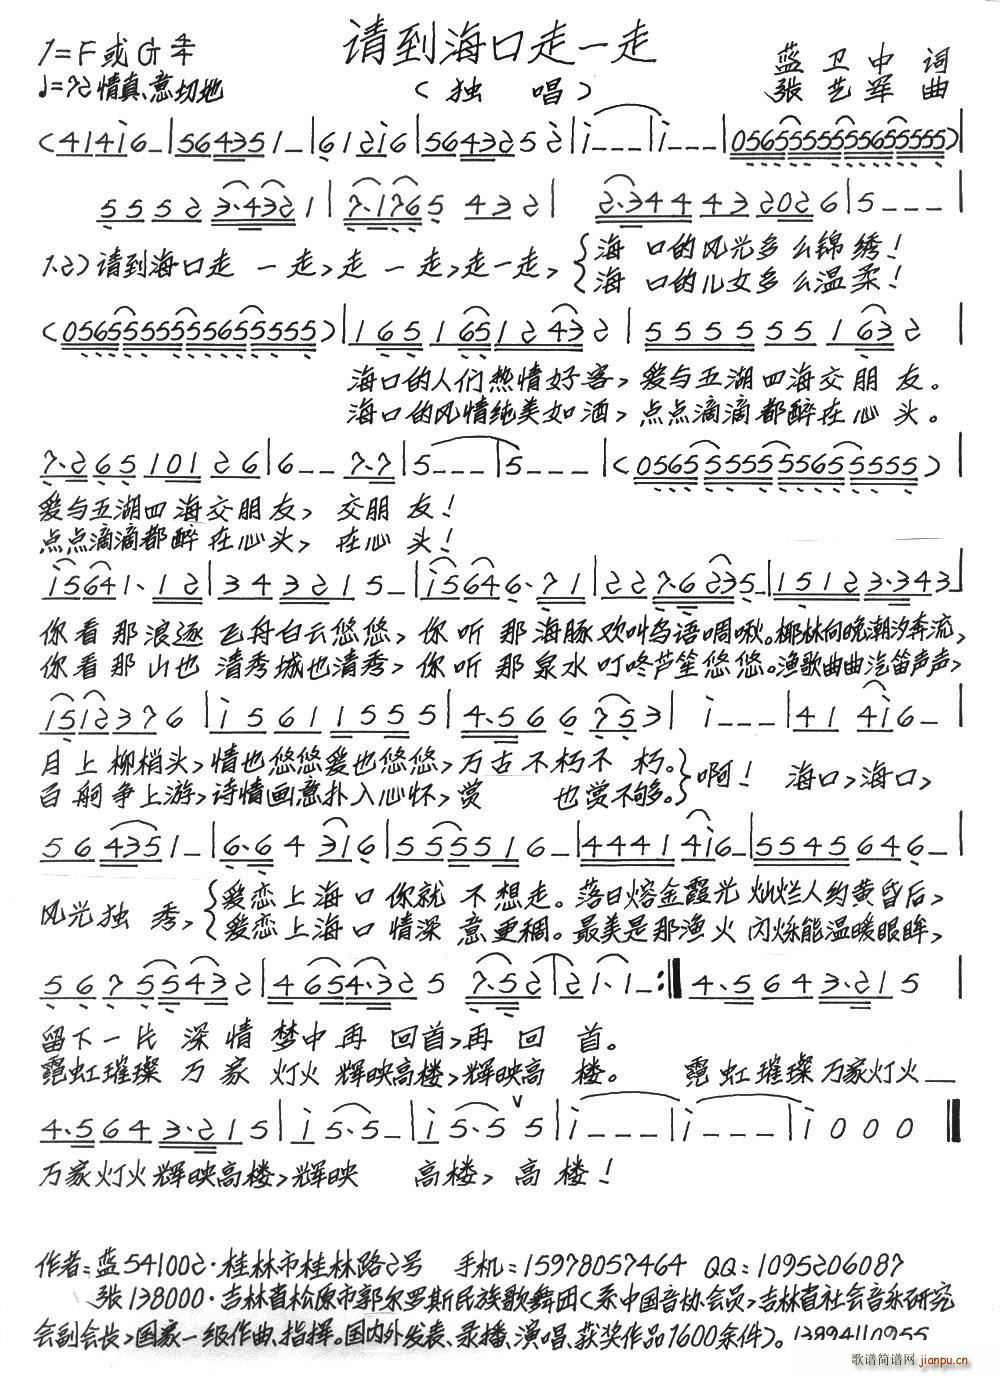 请到海口走一走
1=F或G 4/4
♩=72 情真、意切地
(独 唱)
蓝卫中 词
张艺军 曲
(4 1 4 i 6 - | 5 6 4 3 5 1 - | 6 1 2 i 6 | 5 6 4 3 2 5 2 | i - - - | i - - - | 0565555555565 5555) |
5 5 5 2 3·4 3 2 1 | 7·1 7 6 5 4 3 2 | 2·3 4 4 4 3 2 0 2 6 | 5 - - - |
1.2)请到海口走 一 走,走 一 走,走一走, {海 口的风光多么锦绣!
{海 口的儿女多么温柔!
(0565555555565 5555) | 1 6 5 1 6 5 1 2 4·3 2 | 5 5 5 5 5 5 5 1 6 3 2
海口的人们热情好客,爱与五湖四海交朋友。
海口的风情纯美如酒,点点滴滴都醉在心头。
7·2 6 5 1 0 1 2 6 | 6 - - 7·7 | 5 - - - | 5 - - - | (0565555555565 5555) |
爱与五湖四海交朋友, 交朋 友!
点点滴滴都醉在心头, 在心 头!
i 5 6 4 1· 1 2 | 3 4 3 2 1 5 - | i 5 6 4 6· 7 1 | 2 2 7·6 2 3 5 - | 1 5 1 2 3·3 4 3 |
你看那浪逐飞舟白云悠悠,你听那海豚欢叫鸟语啁啾。椰林向晚潮汐奔流,
你看那山也清秀城也清秀,你听那泉水叮咚芦笙悠悠。渔歌曲曲汽笛声声,
1 5 1 2 3 7 6 | i 5 6 1 1 5 5 5 | 4·5 6 6 7 5 3 | i - - - | 4 1 4 i 6 - |
月上柳梢头,情也悠悠爱也悠悠,万古不朽不 朽。}啊! 海口,海口,
百舸争上游,诗情画意扑入心怀,赏 也赏不够。}
5 6 4 3 5 1 - | 6·6 4 3 1 6 | 5 5 5 5 1 6 - | 4 4 4 1 4 i 6 - | 5 5 4 5 6 4 6 - |
风光独 秀, {爱恋上海口你就不想走。落日熔金霞光灿烂人约黄昏后,
{爱恋上海口情深意更稠。最美是那渔火闪烁能温暖眼眸,
5 6 7 5 5 4 3 2 | 4 6 5 4·3 2 5 | 7·5 2 | 2 1·1 - :| 4·5 6 4 3·2 1 5 |
留下一片深情梦中再回首,再 回 首。
霓虹璀璨万家灯火辉映高楼,辉映高 楼。 霓虹璀璨万家灯火
4·5 6 4 3·2 1 5 | i 5·5 - | i 5·5 5 | i - - - | i - - - | i 0 0 0 ‖
万家灯火辉映高楼,辉映 高楼,高 楼!
作者:蓝541002·桂林市桂林路2号 手机:15978057464 QQ:1095206087
张138000·吉林省松原市郭尔罗斯民族歌舞团(系中国音协会员,吉林省社会音乐研究
会副会长,国家一级作曲、指挥。国内外发表、录播、演唱、获奖作品1600余件)。13894110955
歌谱简谱网 jianpu.cn